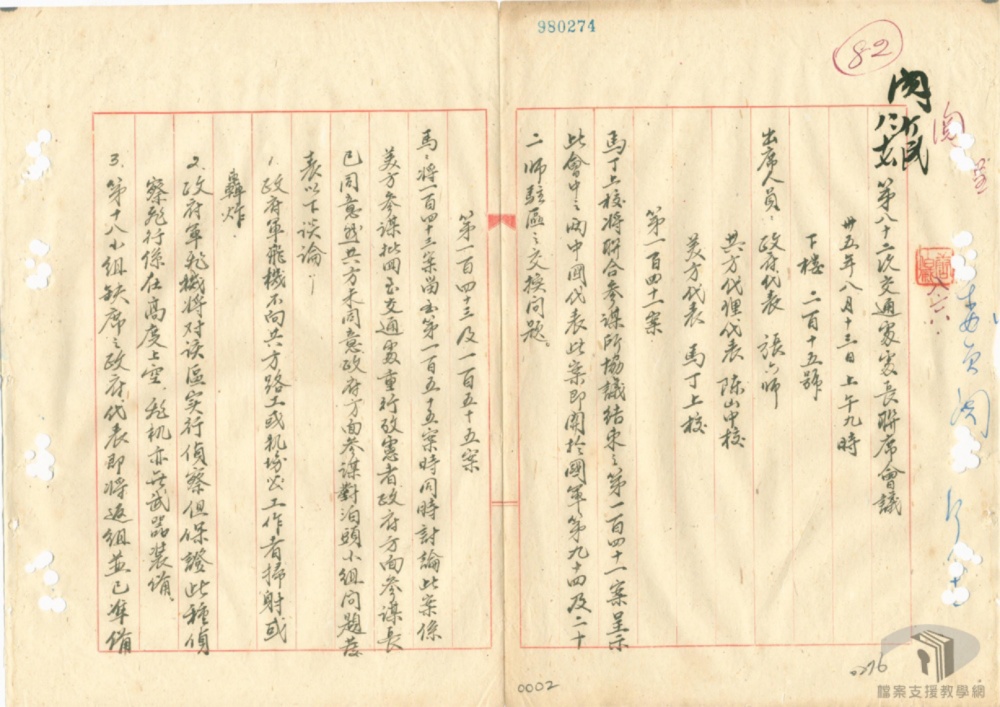 980274
82
閱
第八十二次交通處處長聯席會議
卅五年八月十三日上午九時
下樓 二百十五號
出席人員：政府代表 張六師
共方代理代表 陈山中校
美方代表 馬丁上校
第一百四十一案
馬丁上校将聯合参謀所協議結束之第一百四十一案呈示
此會中之兩中國代表此案即関於國軍第九十四及二十
二師駐區之交換问題。
第一百四十三及一百五十五案
馬：将一百四十三案與第一百五十五案時同時討論此案係
美方参謀批回至交通處重行改憲者政府方面参謀長
已同意 共方未同意政府方面参謀對泊頭小組问題發
表以下谈論—
1. 政府軍飛機不向共方路工或机場之工作者掃射或
轟炸.
2. 政府軍飛機将对该區实行偵察但保證此種偵
察飛行係在高度上空 飛机亦無武器装備.
3. 第十八小組缺席之政府代表即将返組並已準備
0002
0276
檔案支援教學網